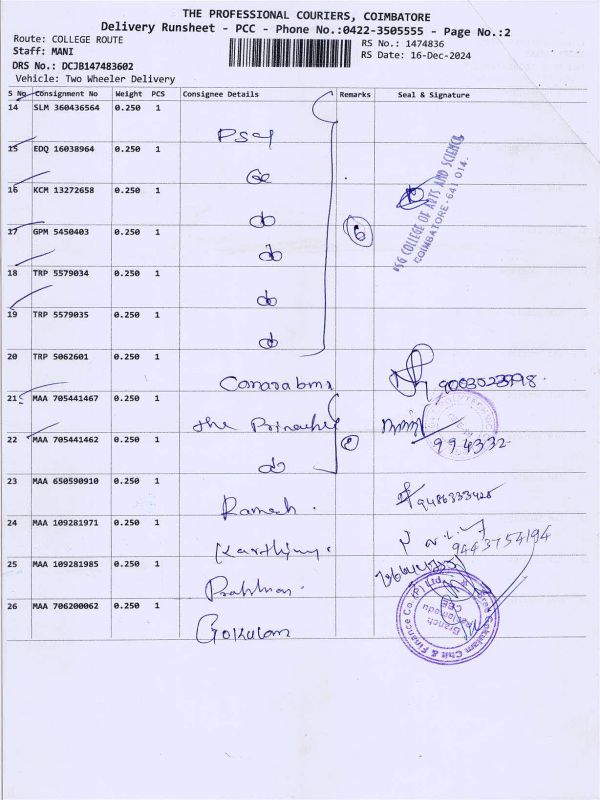 THE PROFESSIONAL COURIERS, COIMBATORE
Delivery Runsheet - PCC - Phone No.:0422-3505555 - Page No.:2
Route: COLLEGE ROUTE
RS No.: 1474836
Staff: MANI
RS Date: 16-Dec-2024
DRS No.: DCJB147483602
Vehicle: Two Wheeler Delivery
S No Consignment No Weight PCS Consignee Details Remarks Seal & Signature
14 SLM 360436564 0.250 1
PSG
15 EDQ 16038964 0.250 1
do
16 KCM 13272658 0.250 1
do
17 GPM 5450403 0.250 1
6
PSG COLLEGE OF ARTS AND SCIENCE
COIMBATORE-641 014.
do
18 TRP 5579034 0.250 1
do
19 TRP 5579035 0.250 1
do
20 TRP 5062601 0.250 1
21 MAA 705441467 0.250 1
the
22 MAA 705441462 0.250 1
994332
do
23 MAA 650590910 0.250 1
Ramesh.
9486333428
24 MAA 109281971 0.250 1
9443754194
25 MAA 109281985 0.250 1
26 MAA 706200062 0.250 1
Gokulam
Chit & Finance Co. (P) Ltd.
Branch